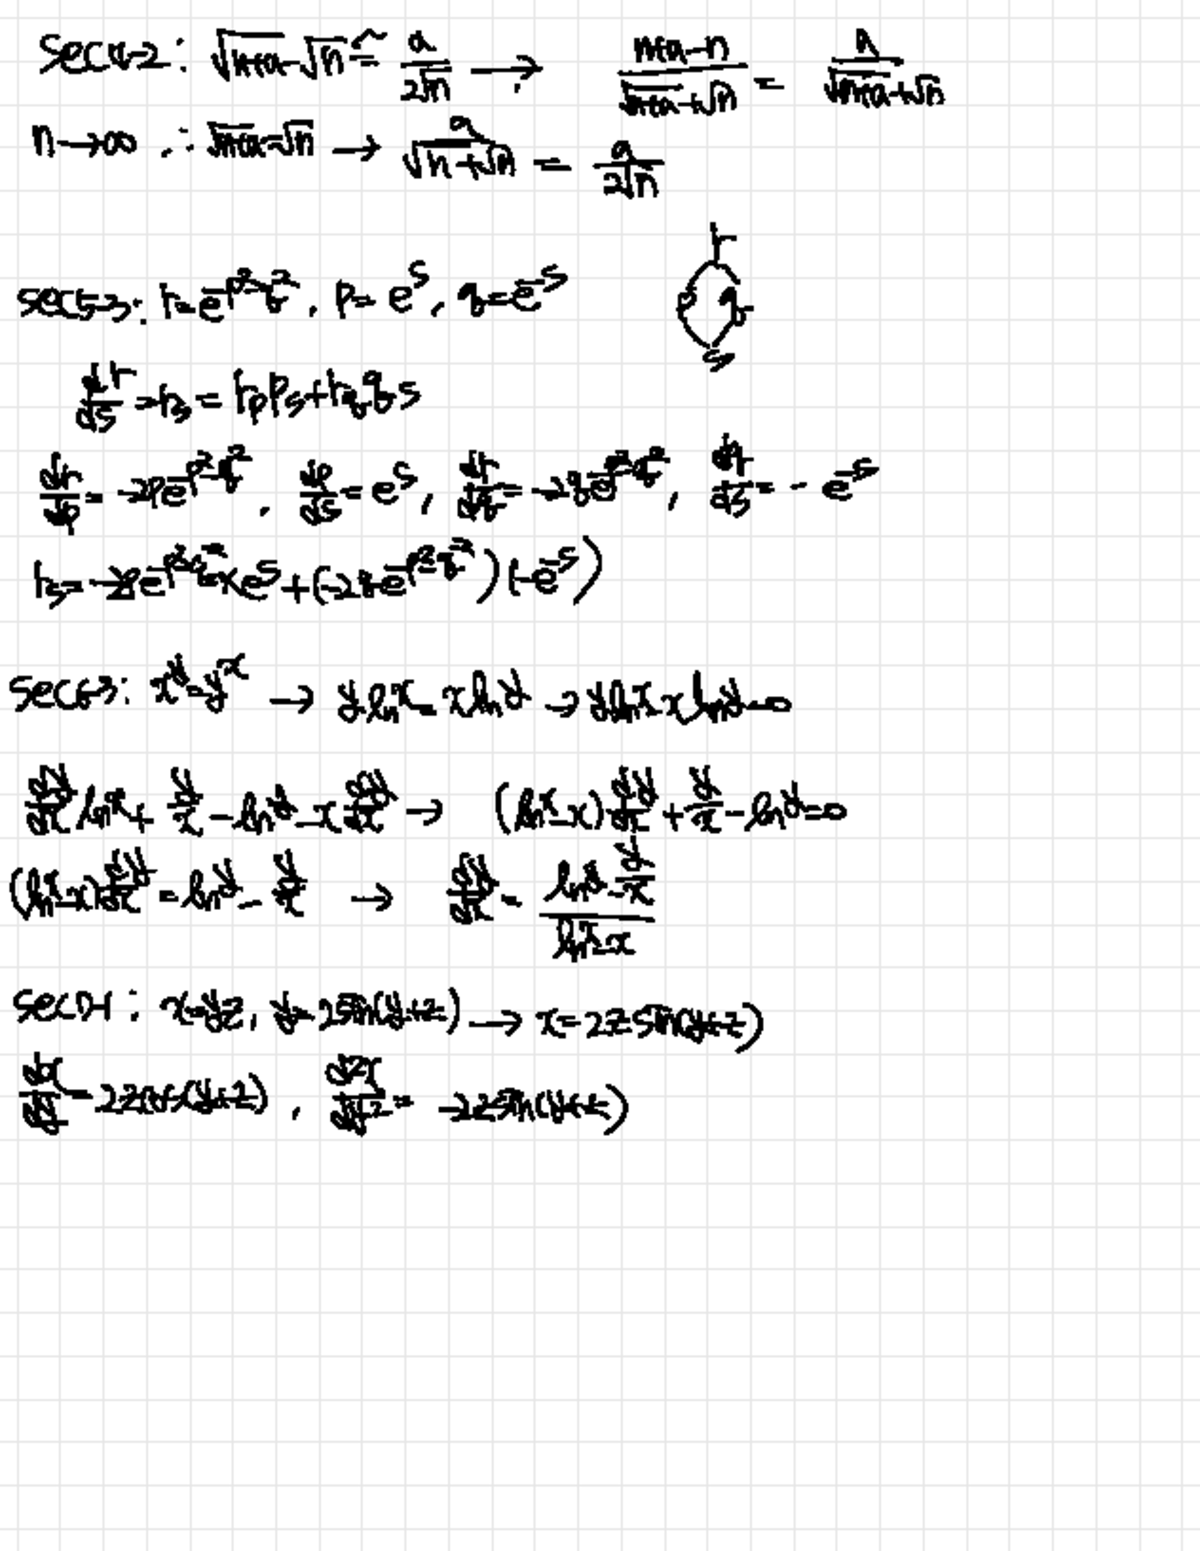 sec4-2: √(n+a) - √n ≃ a/(2√n) → (n+a-n)/(√(n+a)+√n) = a/(√(n+a)+√n)
n→∞ ∴ √(n+a) = √n → a/(√n+√n) = a/(2√n)
sec5-3: r = e^(-p²-q²), p = e^s, q = e^(-s)
r
p q
s
dr/ds → r_s = r_p p_s + r_q q_s
dr/dp = -2pe^(-p²-q²), dp/ds = e^s, dr/dq = -2qe^(-p²-q²), dq/ds = -e^(-s)
r_s = -2pe^(-p²-q²) × e^s + (-2qe^(-p²-q²))(-e^(-s))
sec6-3: x^y = y^x → y ln x = x ln y → y ln x - x ln y = 0
dy/dx ln x + y/x - ln y - x dy/dx → (ln x - x) dy/dx + y/x - ln y = 0
(ln x - x) dy/dx = ln y - y/x → dy/dx = (ln y - y/x)/(ln x - x)
x = yz, y = 2sin(y+z) → x = 2z sin(y+z)
dx/dy = 2z cos(y+z), d²x/dy² = -2z sin(y+z)